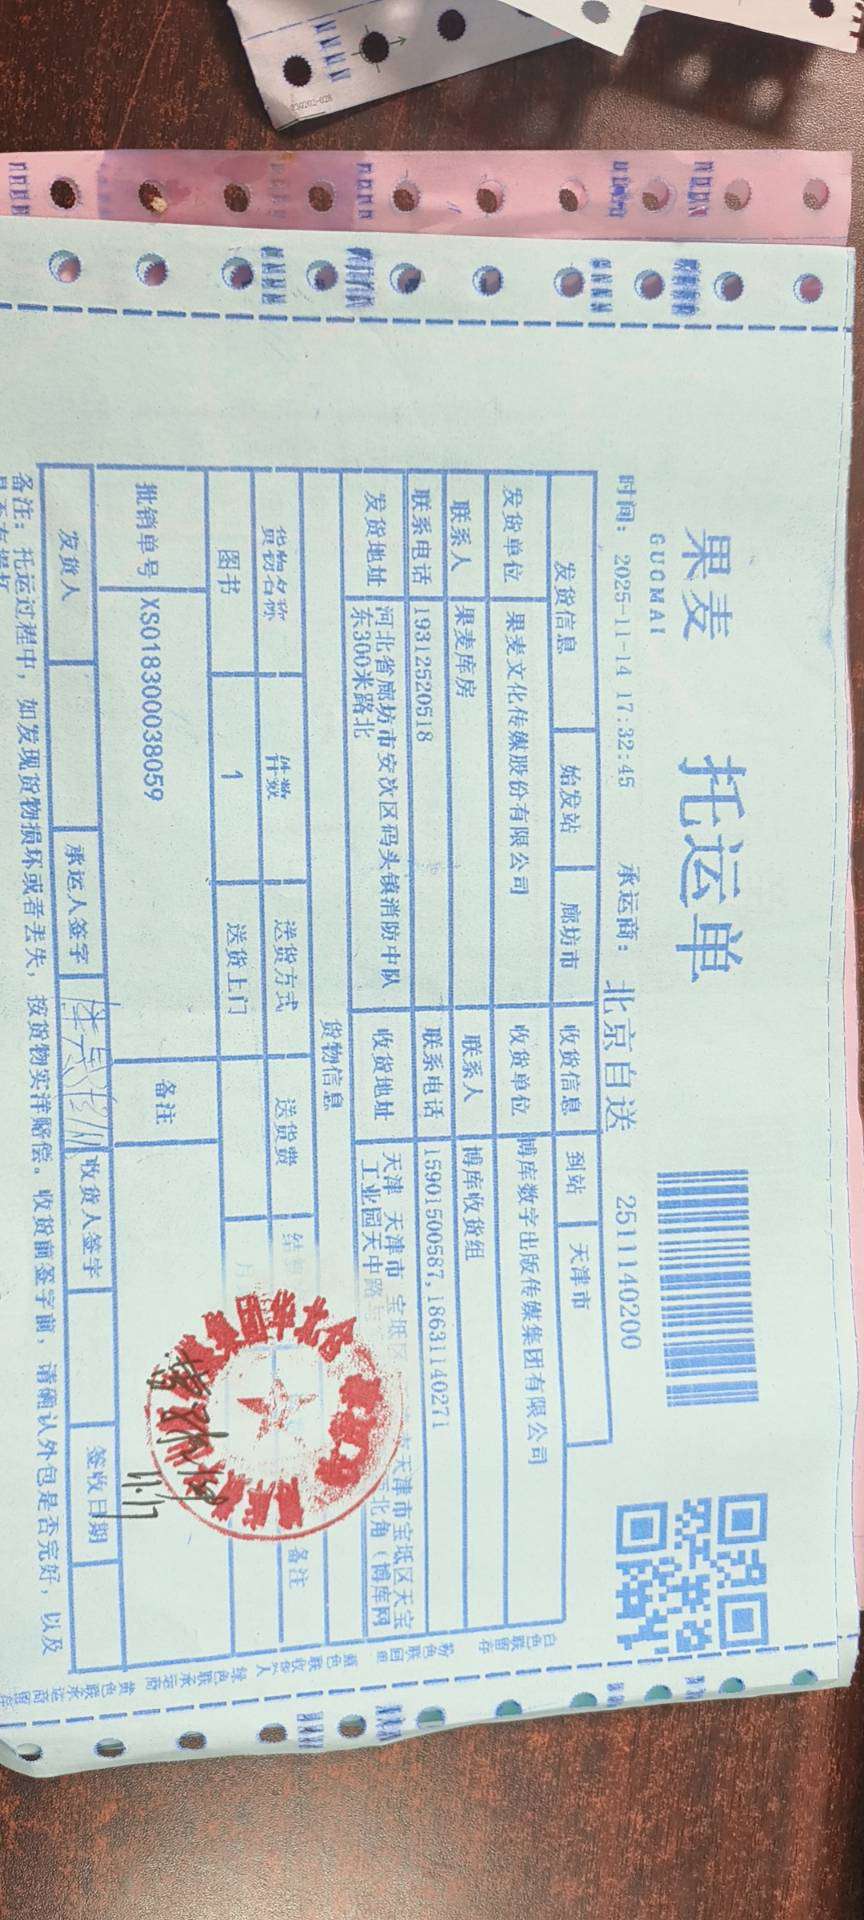 果麦 托运单
GUOMAI
时间：2025-11-14 17:32:45 承运商：北京自送 2511140200
发货信息 始发站 廊坊市 收货信息 到站 天津市
发货单位 果麦文化传媒股份有限公司 收货单位 博库数字出版传媒集团有限公司
联系人 果麦库房 联系人 博库收货组
联系电话 19312520518 联系电话 15901500587,18631140271
发货地址 河北省廊坊市安次区码头镇消防中队 收货地址 天津 天津市 宝坻区 天津市宝坻区天宝
东300米路北 工业园天中路 北角（博库网
货物信息
货物名称 件数 送货方式 送货费 结 备注
图书 1 送货上门 月
批销单号 XS018300038059 备注
发货人 承运人签字 收货人签字 签收日期
11.17
备注：托运过程中，如发现货物损坏或者丢失，按货物实洋赔偿。收货前签字前，请确认外包是否完好，以及
是否有损坏
白色联留存
粉色联回单
蓝色联收货人
绿色联承运商
黄色联承运商留存